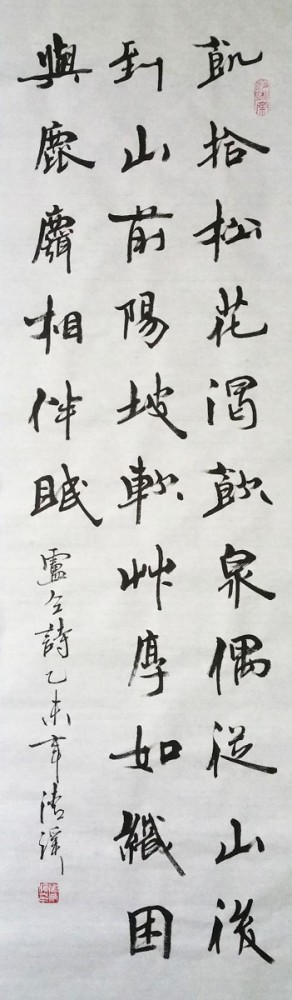 飢拾松花渴飲泉偶從山後
到山前陽坡軟艸厚如織困
與鹿麛相伴眠
盧仝詩乙未年清